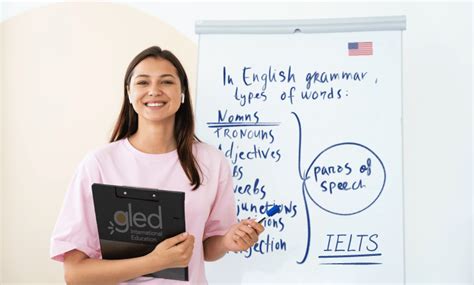 In English grammar,
types of words:
Nomns
PRONOUNS
Adjectives
bs
verbs
junctions
tions
jection
paros of
speech
IELTS
gled
International
Education